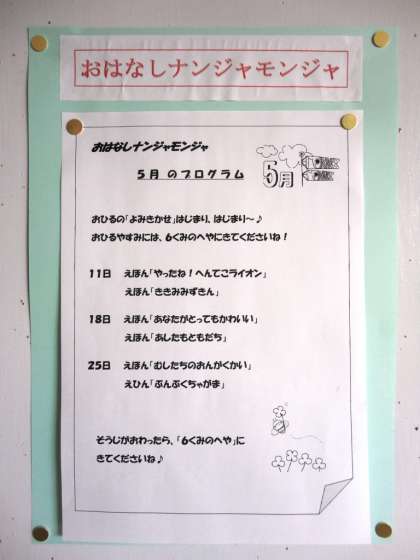 おはなしナンジャモンジャ
おはなしナンジャモンジャ
5月 のプログラム
5月
おひるの「よみきかせ」はじまり、はじまり～♪
おひるやすみには、6くみのへやにきてくださいね！
11日 えほん「やったね！へんてこライオン」
えほん「ききみみずきん」
18日 えほん「あなたがとってもかわいい」
えほん「あしたもともだち」
25日 えほん「むしたちのおんがくかい」
えひん「ぶんぶくちゃがま」
そうじがおわったら、「6くみのへや」に
きてくださいね♪